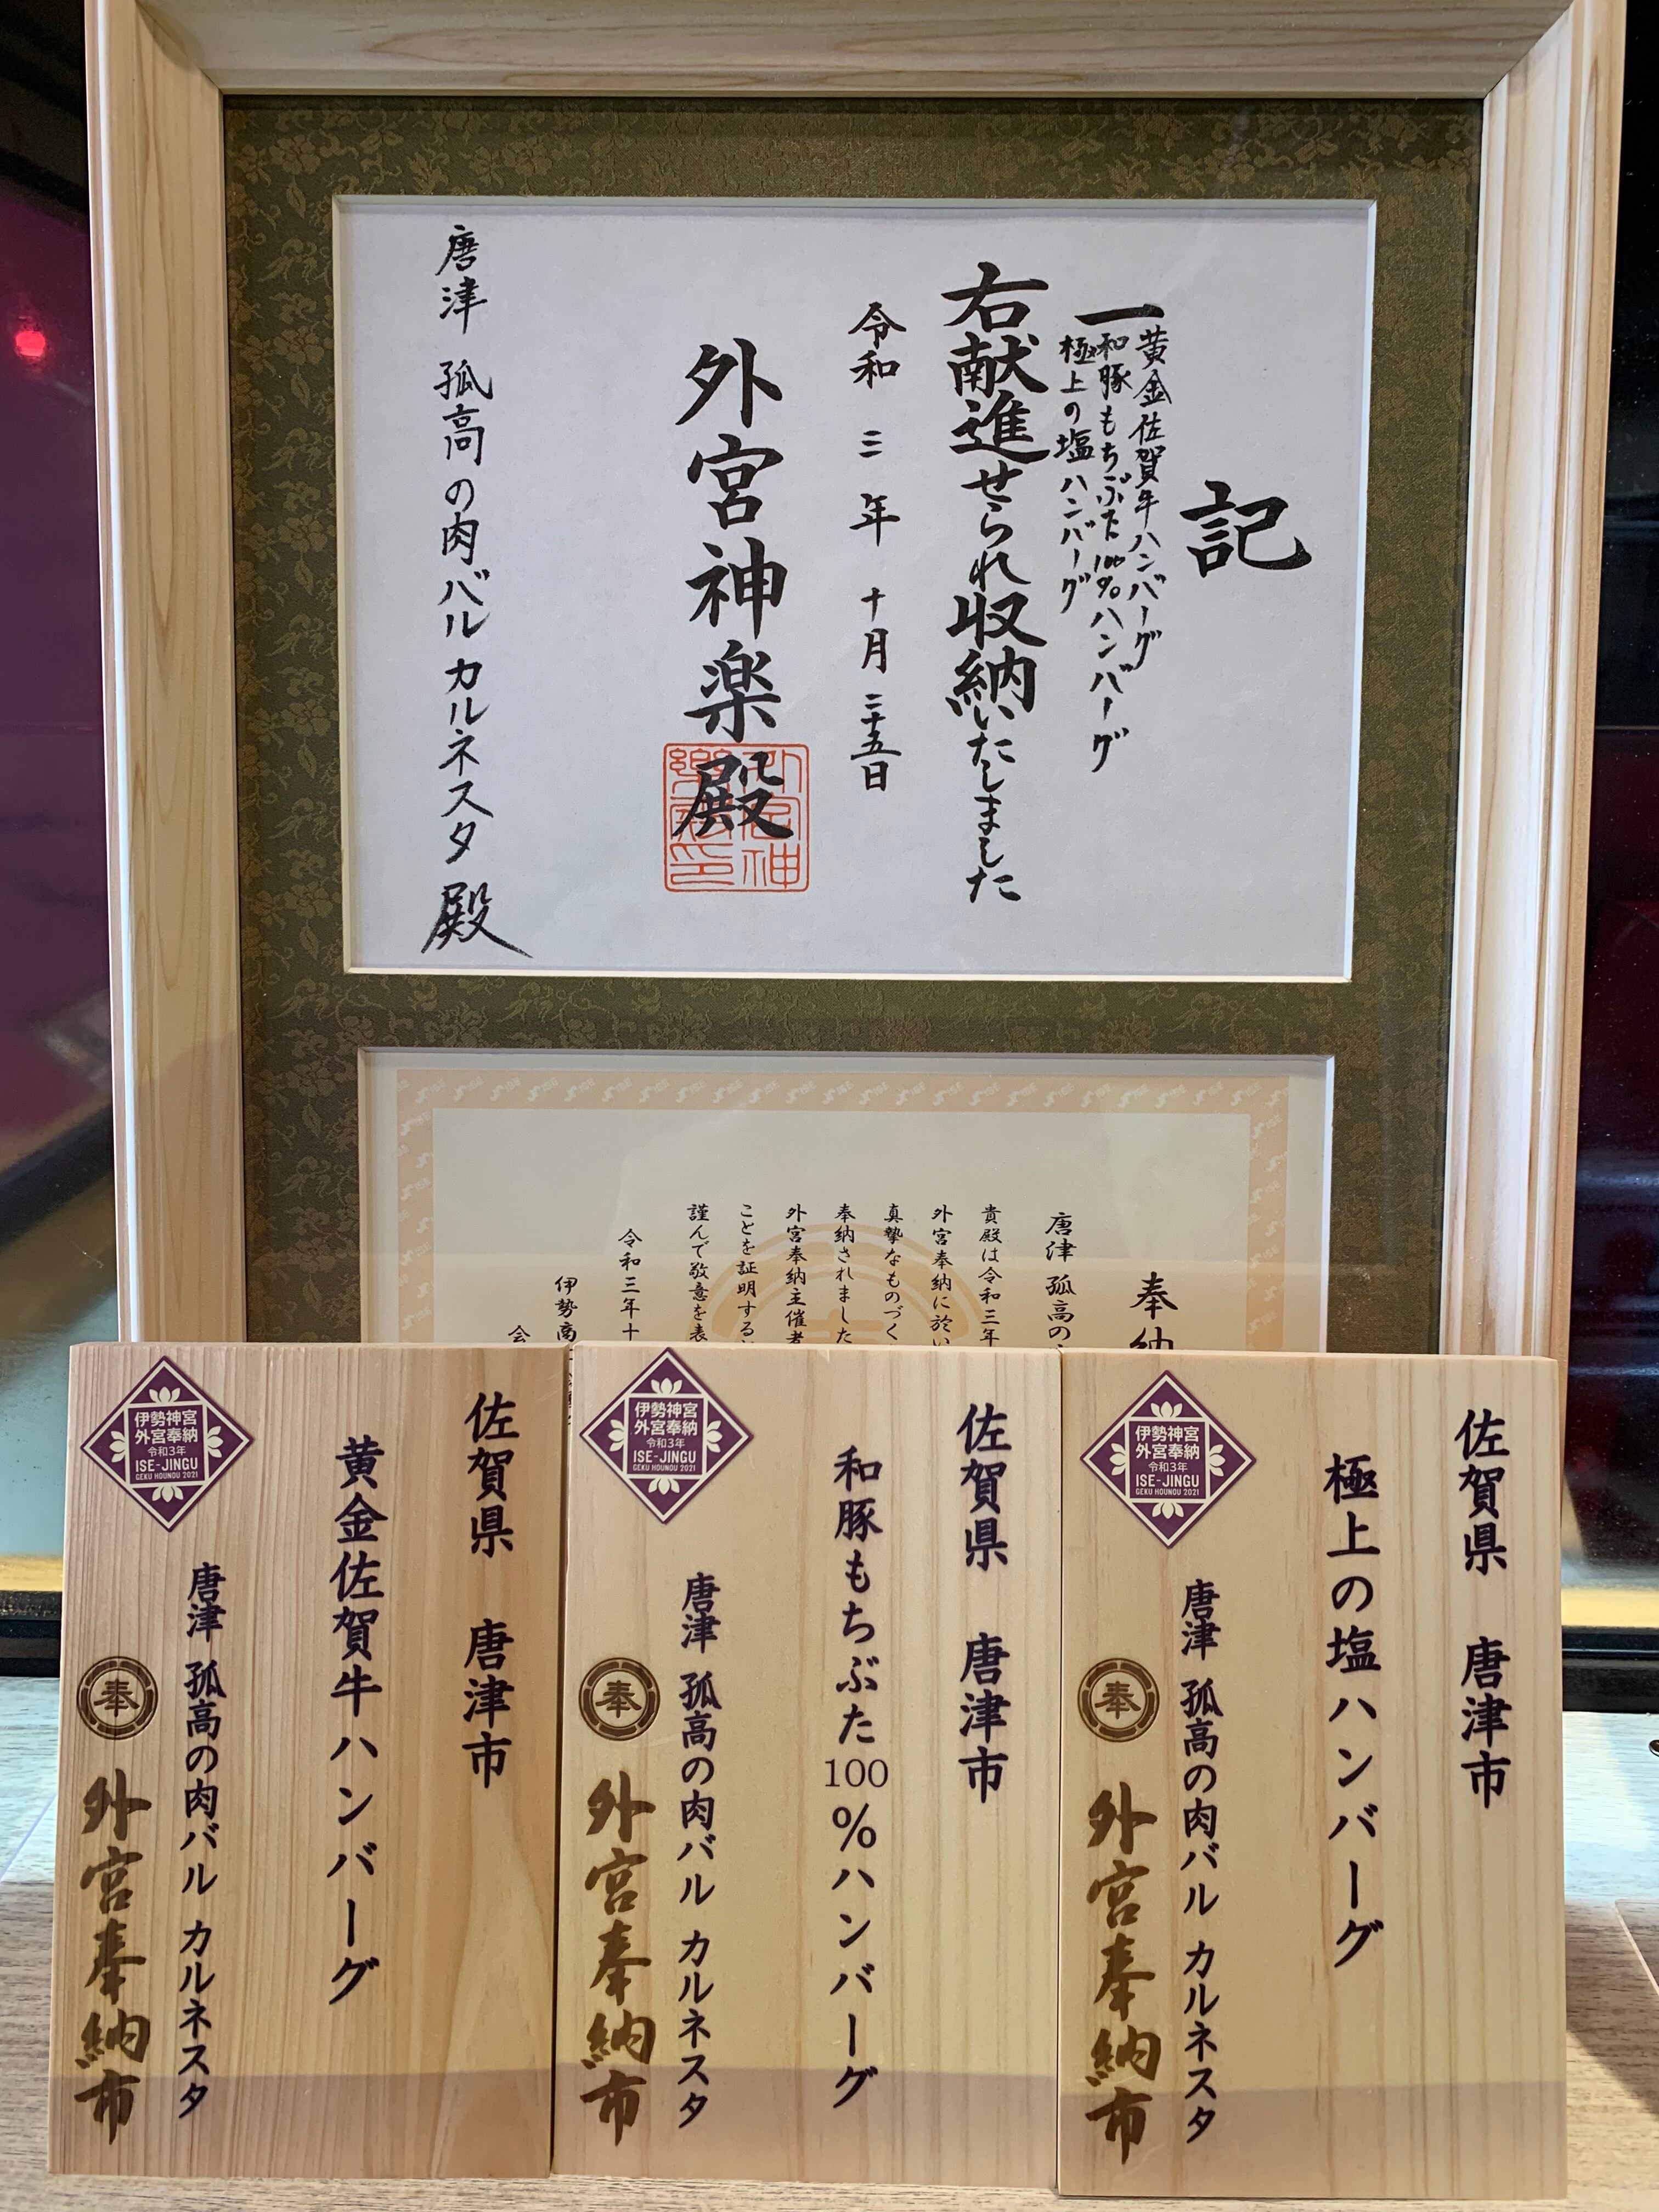 記
一
黄金佐賀牛ハンバーグ
和豚もちぶた100%ハンバーグ
極上の塩ハンバーグ
右献進せられ収納いたしました
令和三年十月二十五日
外宮神楽殿
唐津 孤高の肉バル カルネスタ 殿
奉納
唐津 孤高の
貴殿は令和三年
外宮奉納に於い
真摯なものづく
奉納されました
外宮奉納主催者
ことを証明する
謹んで敬意を表
令和三年十
伊勢商
会
佐賀県 唐津市
極上の塩ハンバーグ
唐津 孤高の肉バル カルネスタ
伊勢神宮
外宮奉納
令和3年
ISE-JINGU
GEKU HOUNOU 2021
奉
外宮奉納市
佐賀県 唐津市
和豚もちぶた100%ハンバーグ
唐津 孤高の肉バル カルネスタ
伊勢神宮
外宮奉納
令和3年
ISE-JINGU
GEKU HOUNOU 2021
奉
外宮奉納市
佐賀県 唐津市
黄金佐賀牛ハンバーグ
唐津 孤高の肉バル カルネスタ
伊勢神宮
外宮奉納
令和3年
ISE-JINGU
GEKU HOUNOU 2021
奉
外宮奉納市